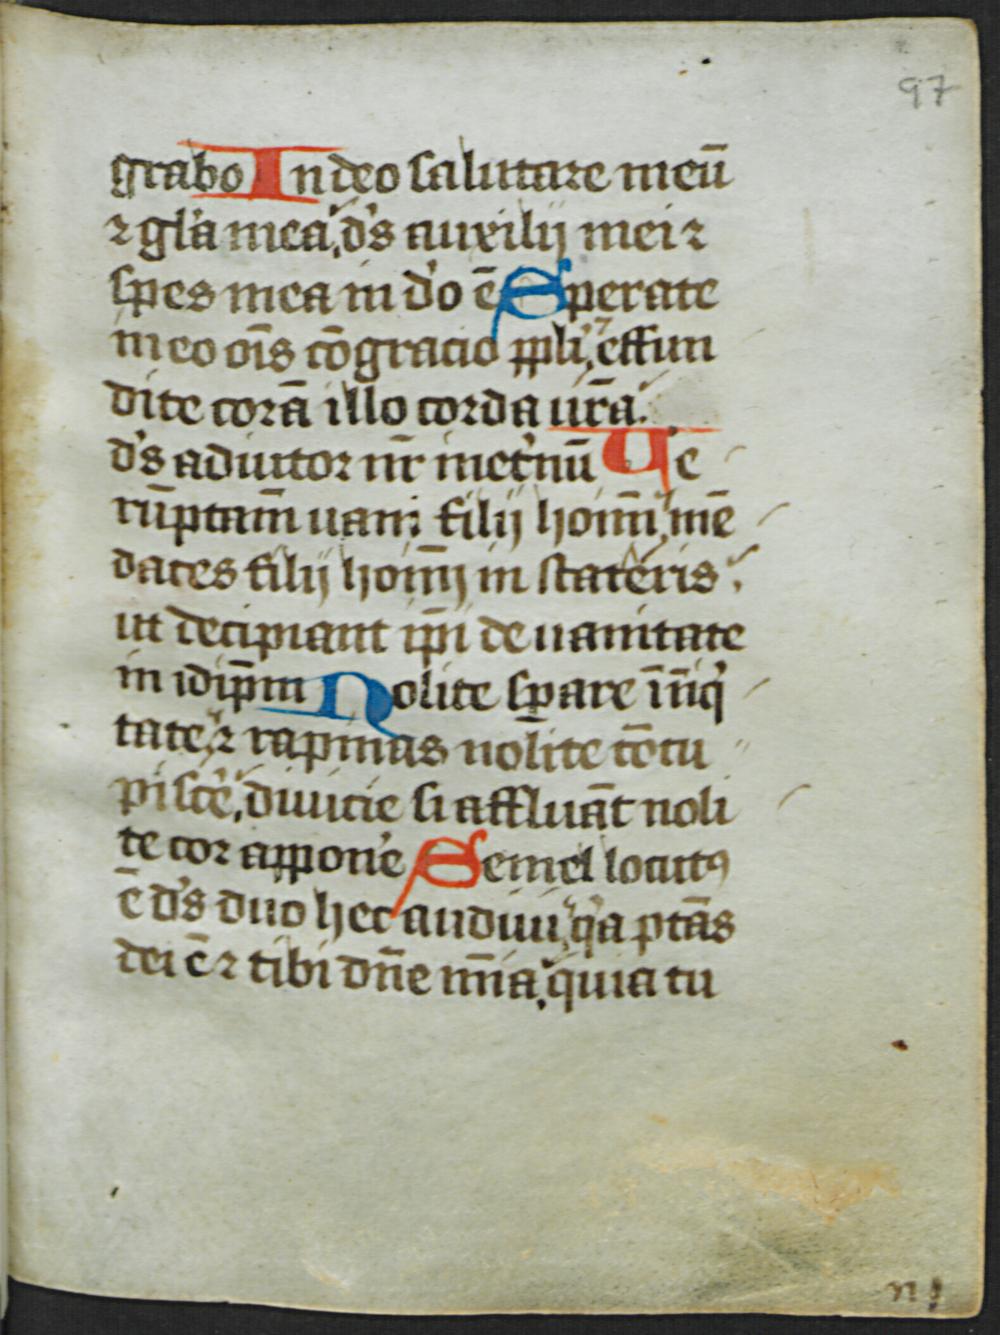 97
grabo In deo salutare meū
⁊ gl'a mea, d's auxilij mei ⁊
spes mea in d'o ē Sperate
in eo oīs cōgracio ppli, effun
dite corā illo corda ur̄a.
d's adiutor nr̄ inet'nū Ue
rūptam̄ uani filij homī, mē
daces filij homī in stateris
ut decipiant ip̄i de uanitate
in idip̄m Nolite spare īniq'
tate, ⁊ rapinas nolite cōcu
pisc'e, diuicie si affluāt noli
te cor appon'e Semel locutꝰ
ē d's duo hec audiui, q'a ptās
dei ē ⁊ tibi dn̄e mīa, quia tu
n j